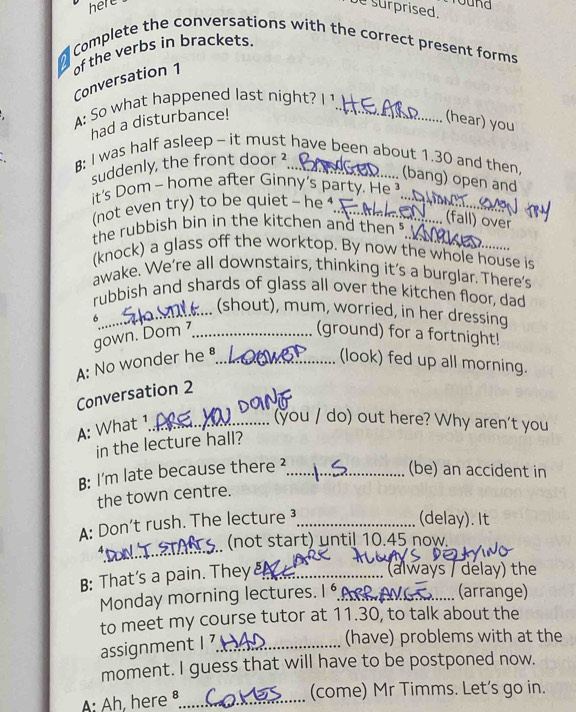 here
be surprised.
ound
2 Complete the conversations with the correct present forms
of the verbs in brackets.
Conversation 1
A: So what happened last night? I ¹ HEARD (hear) you
had a disturbance!
B: I was half asleep – it must have been about 1.30 and then,
suddenly, the front door ² BANGED (bang) open and
it's Dom – home after Ginny's party. He ³ DIDN'T EVEN TRY
(not even try) to be quiet – he ⁴ FALLEN (fall) over
the rubbish bin in the kitchen and then ⁵ KNOKED
(knock) a glass off the worktop. By now the whole house is
awake. We're all downstairs, thinking it's a burglar. There's
rubbish and shards of glass all over the kitchen floor, dad
⁶ (shout), mum, worried, in her dressing
gown. Dom ⁷ (ground) for a fortnight!
A: No wonder he ⁸ LOOKED (look) fed up all morning.
Conversation 2
A: What ¹ ARE YOU DOING (you / do) out here? Why aren't you
in the lecture hall?
B: I'm late because there ² IS (be) an accident in
the town centre.
A: Don't rush. The lecture ³ (delay). It
⁴ DON'T STARTS (not start) until 10.45 now.
B: That's a pain. They ⁵ ARE ALWAYS DELAYING (always / delay) the
Monday morning lectures. I ⁶ ARRANGE (arrange)
to meet my course tutor at 11.30, to talk about the
assignment I ⁷ HAD (have) problems with at the
moment. I guess that will have to be postponed now.
A: Ah, here ⁸ COMES (come) Mr Timms. Let's go in.